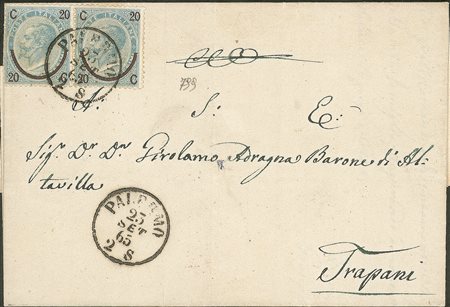 C 20 20 C
20 C 20 C
PALERMO
25
SET
65
2 S
799
A. S: E:
Sigr. Dn. Dn. Girolamo Adragna Barone di Al=
tavilla
PALERMO
25
SET
65
2 S
Trapani